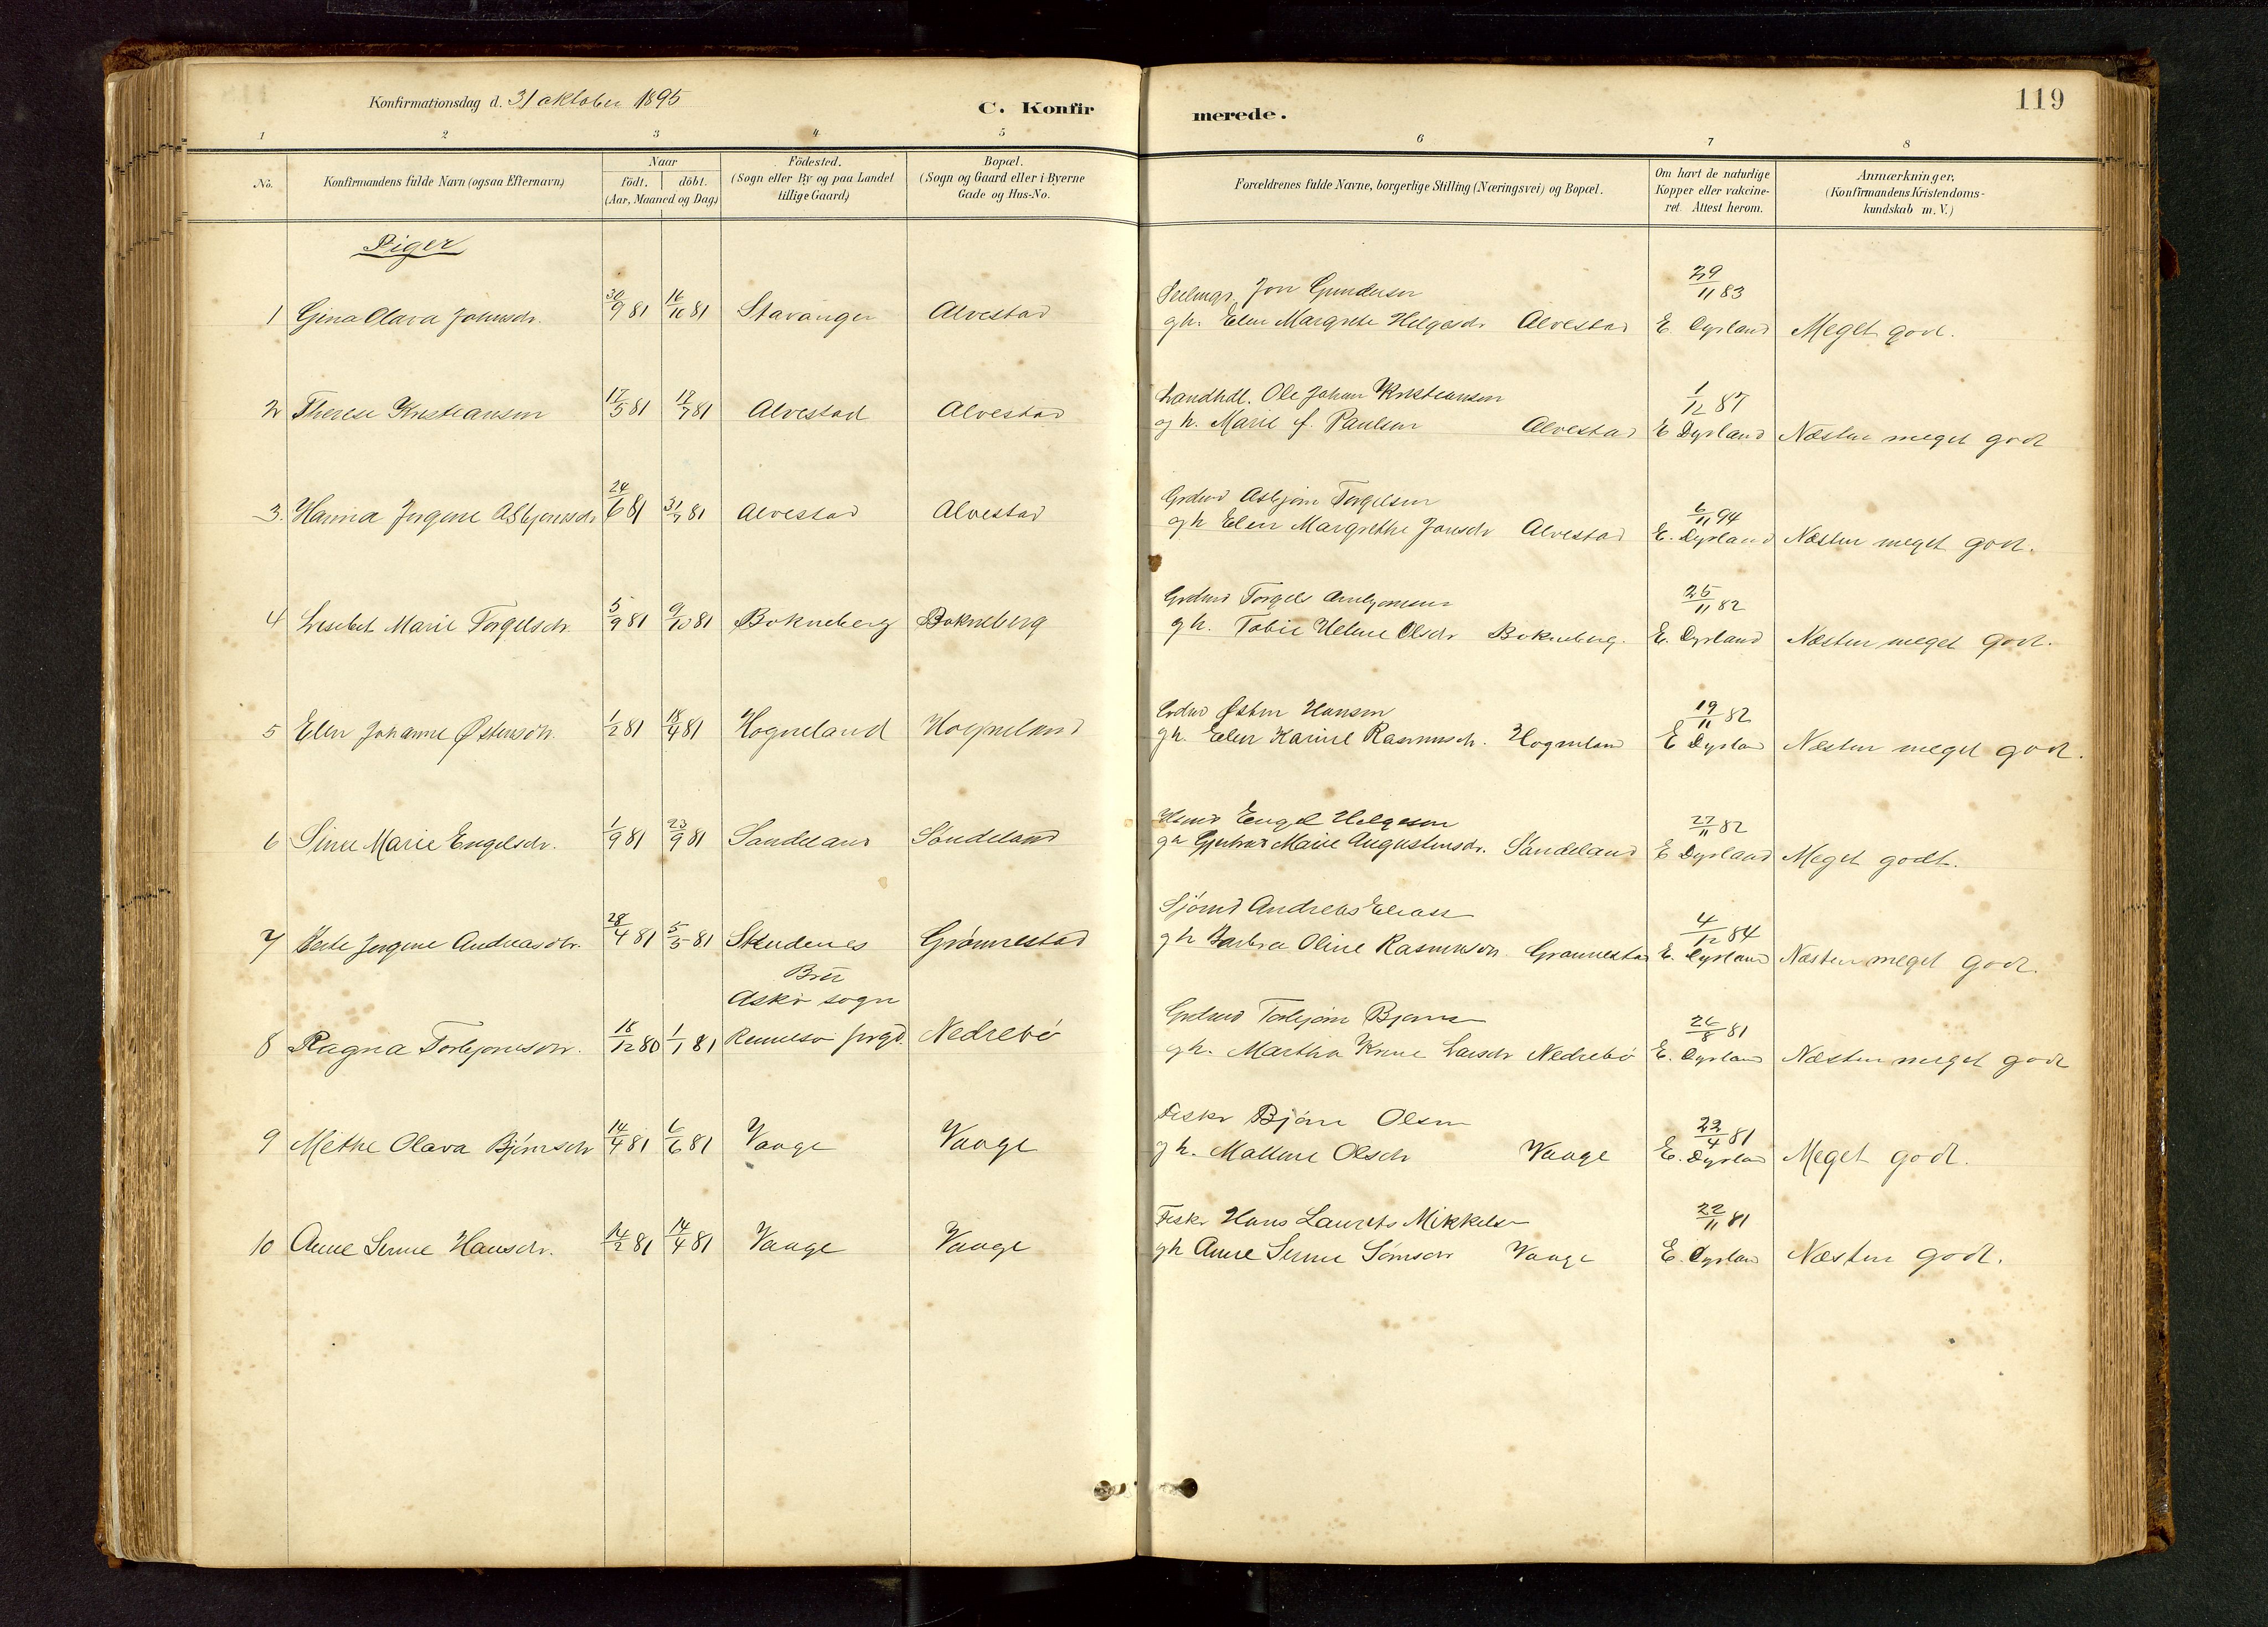 Konfirmationsdag d. 31 oktober 1895
C. Konfirmerede.
119
1 2 3 4 5 6 7 8
No.
Konfirmandens fulde Navn (ogsaa Efternavn)
Naar
født. døbt.
(Aar, Maaned og Dag)
Födested.
(Sogn eller By og paa Landet
tillige Gaard)
Bopæl.
(Sogn og Gaard eller i Byerne
Gade og Hus-No.
Forældrenes fulde Navne, borgerlige Stilling (Næringsvei) og Bopæl.
Om havt de naturlige
Kopper eller vakcine-
ret. Attest herom.
Anmærkninger.
(Konfirmandens Kristendoms-
kundskab m. V.)
Piger
1 Gina Olava Johnsdr. 30/9 81 16/10 81 Stavanger Alvestad
Jon Gundersen 29/11 83
gh. Elen Margrete Helgesdr Alvestad E Dyrland Meget godt.
2 Therese Kristiansen 17/5 81 17/7 81 Alvestad Alvestad
Landhdl. Ole Johan Kristiansen 1/12 87
og h. Marie f. Paulsen Alvestad E Dyrland Næsten meget godt
3. Hanna Jorgine Asbjørnsdr 24/6 81 31/7 81 Alvestad Alvestad
Grdmd Asbjørn Torgelsen 6/11 94
gh Elen Margrethe Jonsdr Alvestad E. Dyrland Næsten meget godt.
4 Lisebet Marie Torgelsdr. 5/9 81 9/10 81 Bokneberg Bokneberg
Grdmd Torgels 25/11 82
gh. Tobie Helene Olsdr Bokneberg. E. Dyrland Næsten meget godt.
5 Elen Johanne Østensdr. 1/2 81 18/4 81 Hogneland Hogneland
Grdmd Østen Hansen 19/11 82
gh. Elen Karine Rasmusdr. Hognelan E Dyrlan Næsten meget godt.
6 Sine Marie Engelsdr. 1/9 81 23/9 81 Sandeland Søndeland
Husmd Engel Helgesen 27/11 82
gh Gjertrud Marie Augustinusdr. Søndeland E Dyrland Meget godt.
7 Berte Jorgine Andreasdtr. 28/4 81 5/5 81 Skudenes Grønnestad
Sjømd Andreas Eliass 4/12 84
gh Barbra Oline Rasmusdr. Grønnestad E. Dyrland Næsten meget godt.
Askø sogn
8 Ragna Torbjørnsdr. 18/12 80 1/1 81 Rennesø prgd. Nedrebø
Grdmd Torbjørn Bjørns 26/8 81
gh. Martha Larsdr Nedrebø E. Dyrland Næsten meget godt
9 Methe Olava Bjørnsdr 14/4 81 6/6 81 Vaage Vaage
Fisker Bjørn Olsen 22/4 81
gh. Mallene Olsdr Vaage E. Dyrlan Meget godt.
10 Anne Serine Hansdr. 14/2 81 14/4 81 Vaage Vaage
Fisker Hans Laurits Mikkelsen 22/11 81
gh Anne Serine Sømsdr Vaage E. Dyrlan Næsten godt.